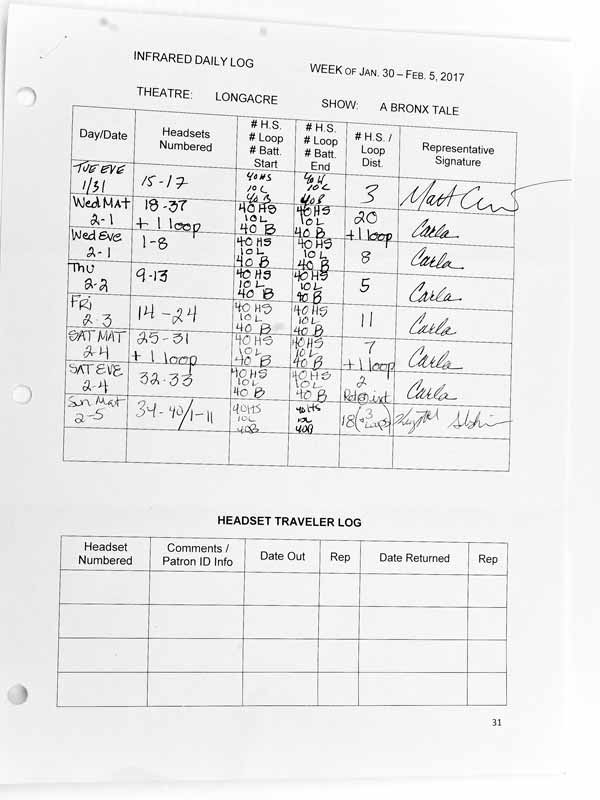 INFRARED DAILY LOG WEEK OF JAN. 30 – FEB. 5, 2017
THEATRE: LONGACRE SHOW: A BRONX TALE
Day/Date Headsets Numbered # H.S. # Loop # Batt. Start # H.S. # Loop # Batt. End # H.S. / Loop Dist. Representative Signature
TUE EVE 1/31 15-17 40HS 10L 40B 40H 10L 40B 3 Matt
Wed MAT 2-1 18-37 + 1 loop 40HS 10L 40B 40HS 10L 40B 20 +1 loop Carla
Wed EVE 2-1 1-8 40HS 10L 40B 40HS 10L 40B 8 Carla
Thu 2-2 9-13 40HS 10L 40B 40HS 10L 40B 5 Carla
FRI 2-3 14-24 40HS 10L 40B 40HS 10L 40B 11 Carla
SAT MAT 2-4 25-31 + 1 loop 40HS 10L 40B 40HS 10L 40B 7 +1 loop Carla
SAT EVE 2-4 32-33 40HS 10L 40B 40HS 10L 40B 2 Carla
Sun Mat 2-5 34-40/1-11 40HS 10L 40B 40HS 10L 40B 18 (+3 Loops)
HEADSET TRAVELER LOG
Headset Numbered Comments / Patron ID Info Date Out Rep Date Returned Rep
31